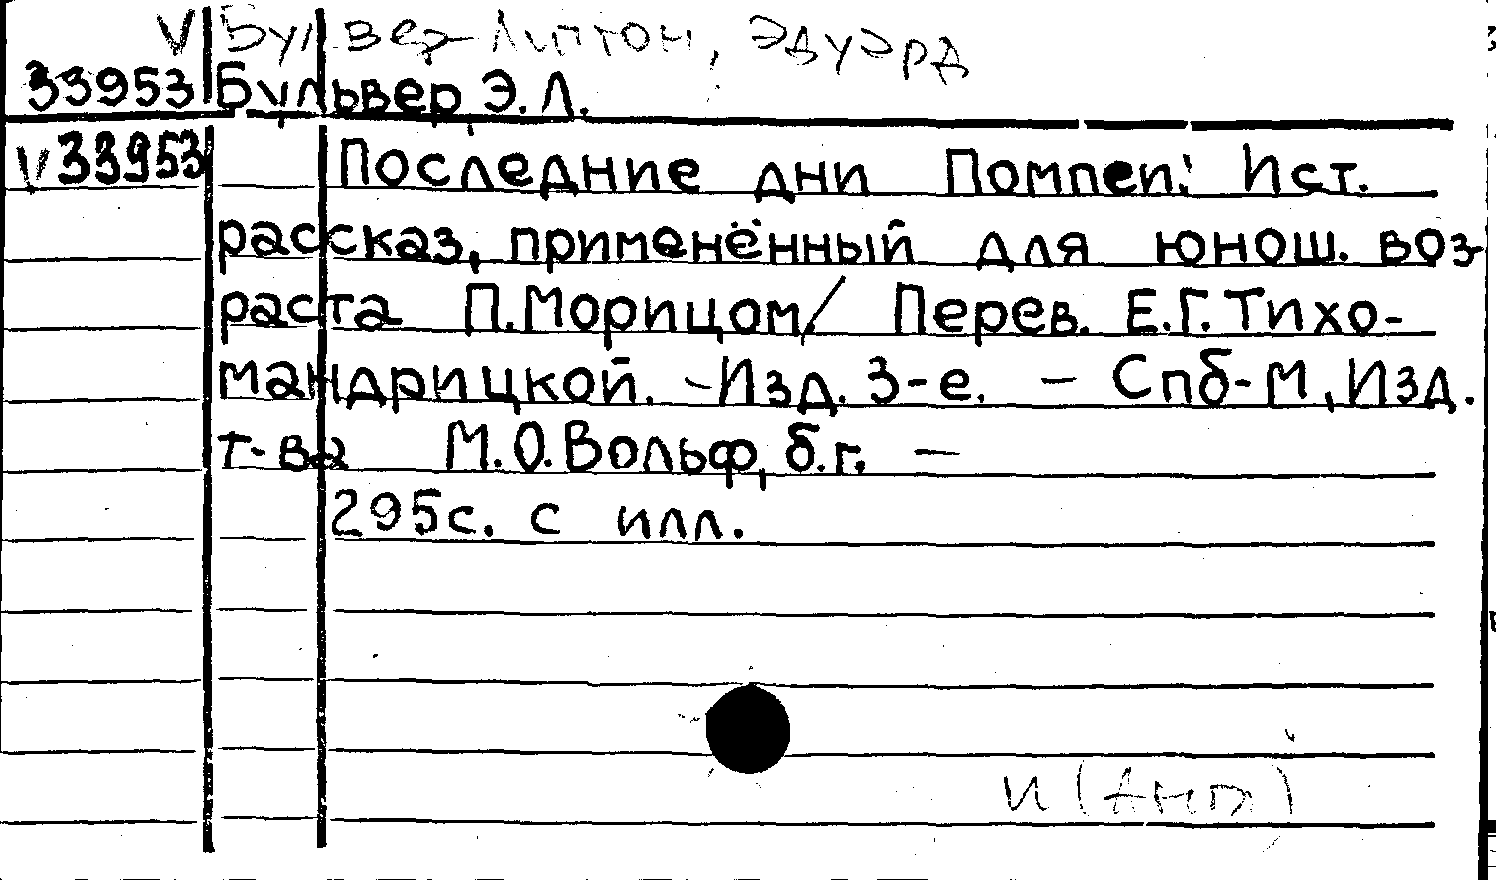 V Бульвер-Литтон, Эдуард
33953 Бульвер, Э. Л.
V 33953 Последние дни Помпеи: Ист.
рассказ, применённый для юнош. воз-
раста П. Морицом/ Перев. Е.Г. Тихо-
мандрицкой. - Изд. 3-е. — Спб-М, Изд.
т-ва М.О. Вольф, б.г. —
295с. с илл.
И (Англ)